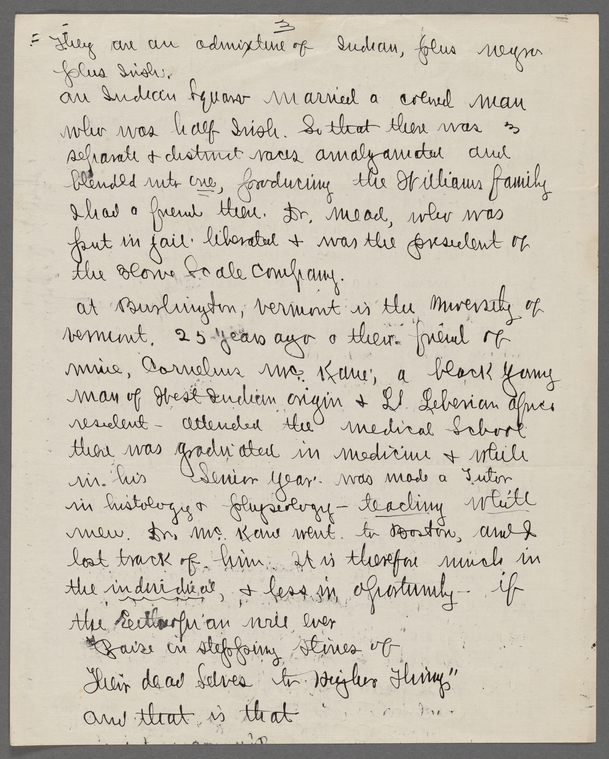 3
They are an admixture of Indian, plus negro
plus Irish.
an Indian Squaw married a colored man
who was half Irish. So that there was 3
separate & distinct races amalgamated and
blended into one, producing the Williams family
I had a friend there. Dr. Mead, who was
put in jail. liberated & was the president of
the Howe Scale Company.
at Burlington, Vermont is the University of
Vermont. 25 years ago a friend of
mine, Cornelius Mc. Kane, a black young
man of West Indian origin & Liberian africa
resident - attended the medical School
there was graduated in medicine & while
in his Senior year. was made a Tutor
in histology & physiology - teaching white
men. Dr. Mc. Kane went to Boston, and I
lost track of him. It is therefore much in
the individual, & less in oportunity - if
the will ever
"Raise in stepping stones of
Their dead Selves to Higher Things"
and that is that